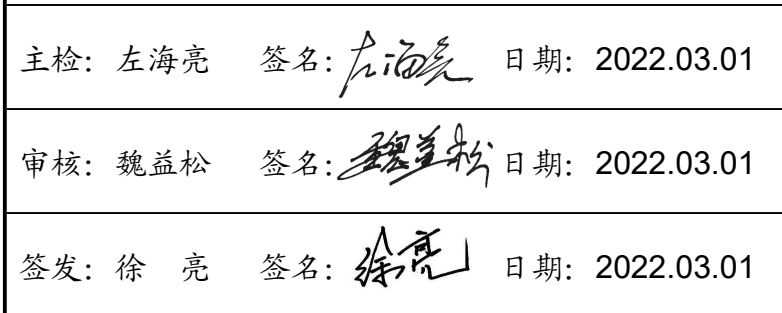 主检：左海亮 签名：左海亮 日期：2022.03.01
审核：魏益松 签名：魏益松 日期：2022.03.01
签发：徐 亮 签名：徐亮 日期：2022.03.01